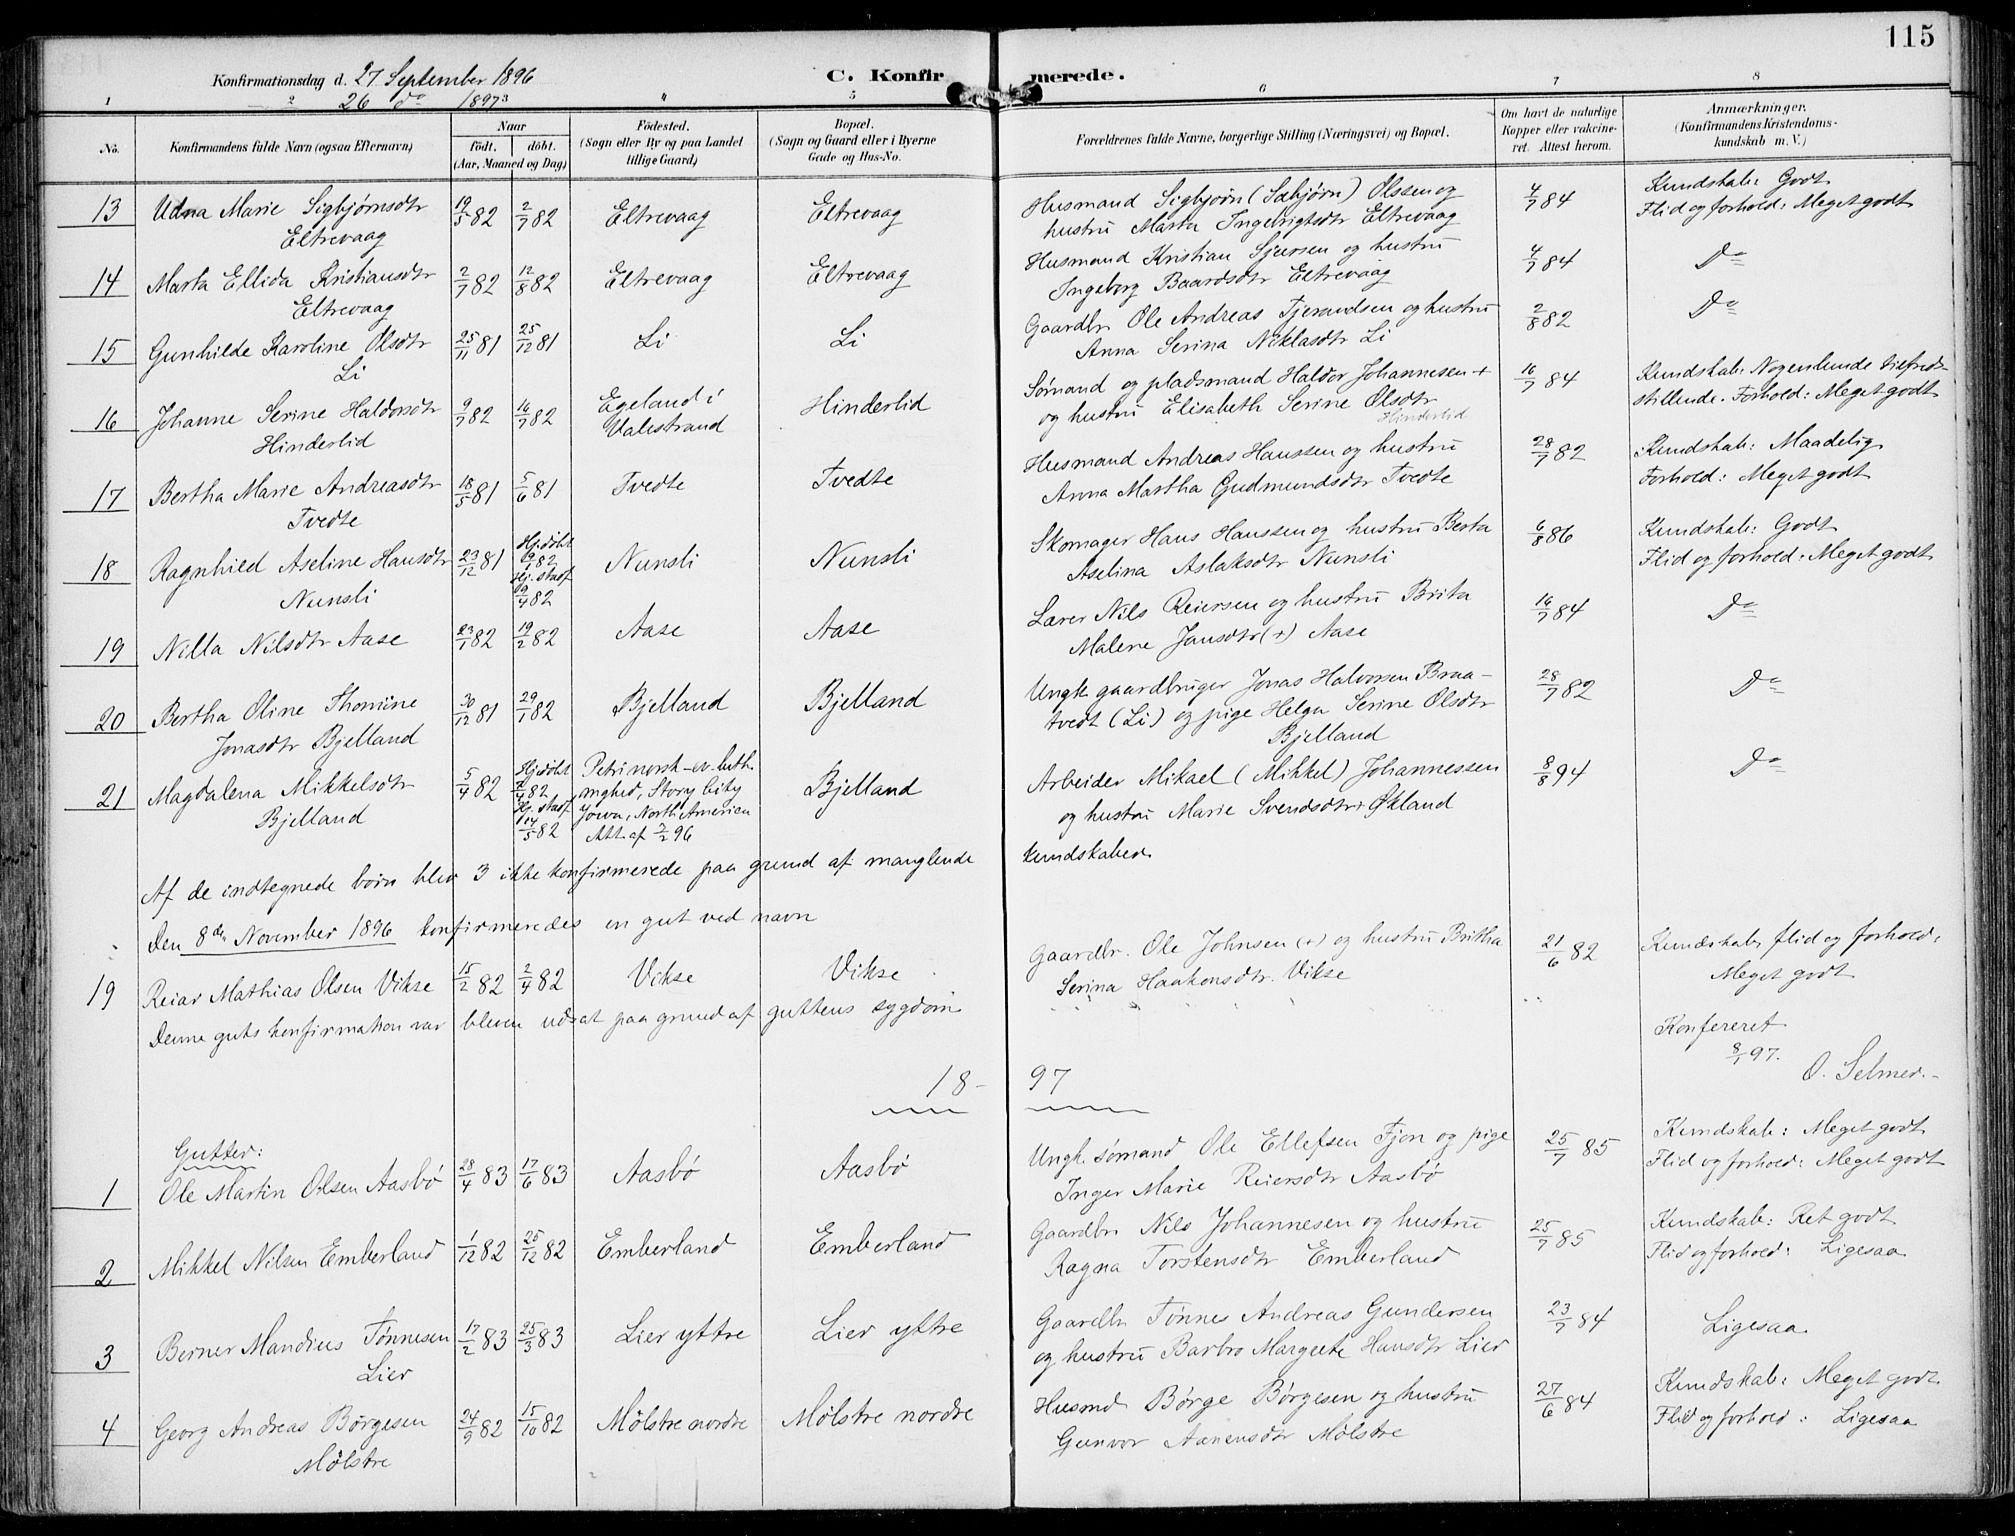 115
Konfirmationsdag d. 27 September 1896
26 do 1897
C. Konfirmerede.
1 2 3 4 5 6 7 8
No. Konfirmandens fulde Navn (ogsaa Efternavn) Naar født. døbt. (Aar, Maaned og Dag) Fødested. (Sogn eller By og paa Landet tillige Gaard) Bopæl. (Sogn og Gaard eller i Byerne Gade og Hus-No. Forældrenes fulde Navne, borgerlige Stilling (Næringsvei) og Bopæl. Om havt de naturlige Kopper eller vakcineret. Attest herom. Anmærkninger. (Konfirmandens Kristendomskundskab m. V.)
13 Udna Marie Sigbjørnsdtr 19/5 82 2/7 82 Eltrevaag Eltrevaag Husmand Sigbjørn (Sæbjørn) Olssen og 4/7 84 Kundskab: Godt
Eltrevaag hustru Marta Ingebrigtsdtr Eltrevaag Flid og forhold: Meget godt
14 Marta Ellida Kristiansdtr 2/7 82 12/8 82 Eltrevaag Eltrevaag Husmand Kristian Sjursen og hustru 4/7 84 Do
Eltrevaag Ingeborg Baardsdtr Eltrevaag
15 Gunhilde Karoline Olsdtr 25/11 81 25/12 81 Li Li Gaardbr Ole Andreas Tjerandsen og hustru 2/8 82 Do
Li Anna Serina Niklasdtr Li
16 Johanne Serine Haldorsdtr 9/7 82 16/7 82 Egeland i Hinderlid Sømand og pladsmand Haldor Johannesen + 16/7 84 Kundskab: Nogenlunde tilfreds-
Hinderlid Valestrand og hustru Elisabeth Serine Olsdtr Hinderlid stillende. Forhold: Meget godt
17 Bertha Marie Andreasdtr 18/5 81 5/6 81 Tvedte Tvedte Husmand Andreas Hanssen og hustru 28/7 82 Kundskab: Maadelig
Tvedte Anna Martha Gudmundsdtr Tvedte Forhold: Meget godt
18 Ragnhild Aseline Hansdtr 23/12 81 Hj.døbt 82 Hj. stadf 82 Nunsli Nunsli Skomager Hans Hanssen og hustru Berta 6/8 86 Kundskab: Godt
Nunsli Aselina Aslaksdtr Nunsli Flid og forhold: Meget godt
19 Nilla Nilsdtr Aase 23/1 82 19/2 82 Aase Aase Lærer Nils Reiersen og hustru Brita 16/7 84 Do
Malene Jansdtr (+) Aase
20 Bertha Oline Thomine 30/12 81 29/1 82 Bjelland Bjelland Ungk. gaardbruger Jonas Halvorsen Braa- 28/7 82 Do
Jonasdtr Bjelland tvedt (Li) og pige Helga Serine Olsdtr
Bjelland
21 Magdalena Mikkelsdtr 5/4 82 Hj.døbt 82 Hj. stadf 14/5 82 Petri norsk-ev.-luth. Bjelland Arbeider Mikael (Mikkel) Johannessen 8/8 94 Do
Bjelland mghed, Story City og hustru Marie Svendsdtr Økland
Jowa, North Amerien
Att. af 3/2 96
Af de indtegnede børn blev 3 ikke konfirmerede paa grund af manglende kundskaber
Den 8de November 1896 konfirmeredes en gut ved navn
19 Reiar Mathias Olsen Vikse 15/2 82 2/4 82 Vikse Vikse Gaardbr. Ole Johnsen (+) og hustru Britha 21/6 82 Kundskab, flid og forhold:
Serina Haakonsdtr. Vikse Meget godt
Denne guts konfirmation var bleven udsat paa grund af guttens sygdom
Konfereret
8/1 97.
O. Selmer.
18-97
Gutter:
1 Ole Martin Olsen Aasbø 28/4 83 17/6 83 Aasbø Aasbø Ungk. sømand Ole Ellefsen Fjon og pige 25/7 85 Kundskab: Meget godt
Inger Marie Reiersdtr Aasbø Flid og forhold: Meget godt
2 Mikkel Nilsen Emberland 1/12 82 25/12 82 Emberland Emberland Gaardbr Nils Johannesen og hustru 25/7 85 Kundskab: Ret godt
Ragna Torstensdtr Emberland Flid og forhold: Ligesaa
3 Berner Mandius Tønnesen 17/2 83 25/3 83 Lier yttre Lier yttre Gaardbr Tønnes Andreas Gundersen 23/7 84 Ligesaa
Lier og hustru Barbro Margrete Hansdtr Lier
4 Georg Andreas Børgesen 24/9 82 15/10 82 Mølstre nordre Mølstre nordre Husmd Børge Børgesen og hustru 27/6 84 Kundskab: Meget godt
Mølstre Gunvor Aanensdtr Mølstre Flid og forhold: Ligesaa